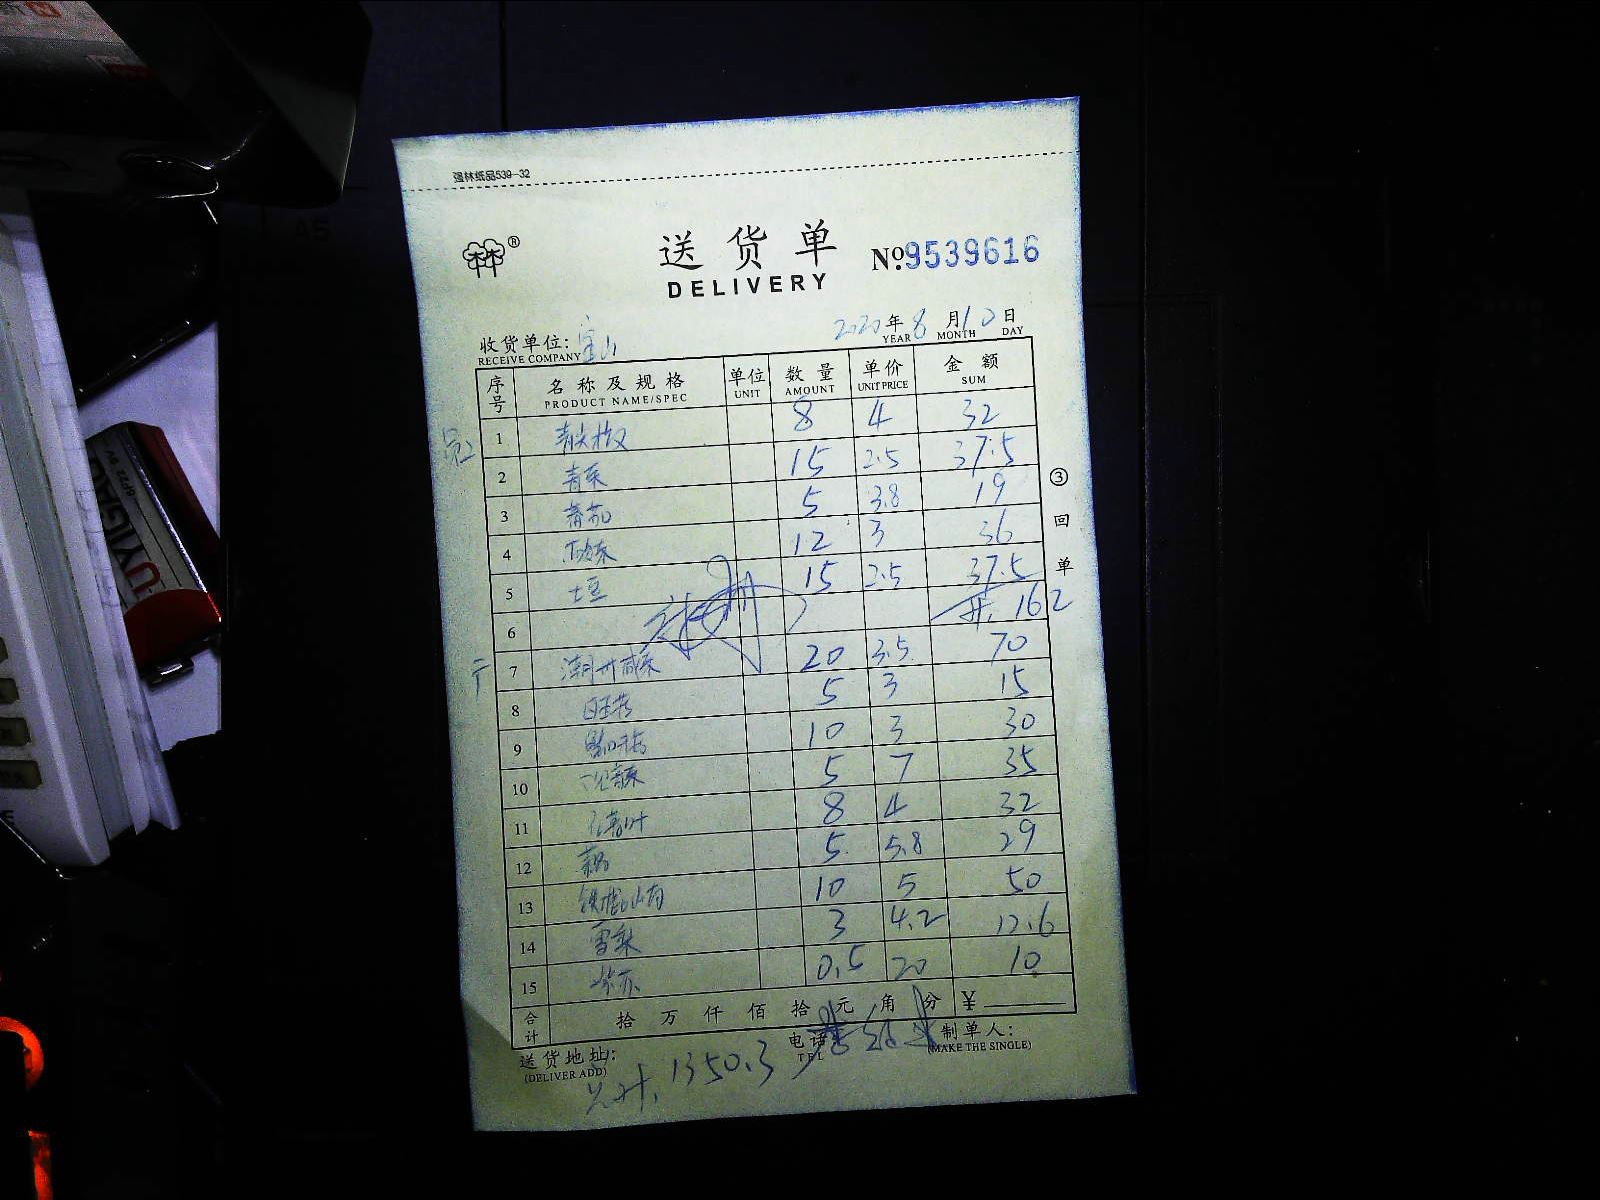 强林纸品539-32
送货单
DELIVERY
№9539616
收货单位: 宝山
RECEIVE COMPANY
2020年8月10日
YEAR MONTH DAY
序号 名称及规格 单位 数量 单价 金额
PRODUCT NAME/SPEC UNIT AMOUNT UNIT PRICE SUM
1 青尖椒 8 4 32
2 青菜 15 2.5 37.5
3 蕃茄 5 3.8 19
4 12 3 36
5 土豆 15 2.5 37.5
6 计. 162
7 潮州咸菜 20 3.5 70
8 5 3 15
9 10 3 30
10 5 7 35
11 8 4 32
12 藕 5 5.8 29
13 铁棍山药 10 5 50
14 雪梨 3 4.2 12.6
15 紫苏 0.5 20 10
合计 拾 万 仟 佰 拾 元 角 分 ¥
③回单
送货地址: 电话 制单人:
(DELIVER ADD) TEL (MAKE THE SINGLE)
共计. 1350.3
A5